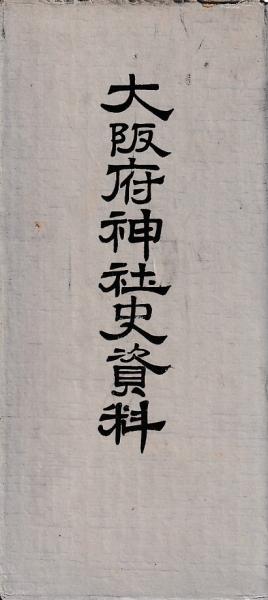 大阪府神社史資料